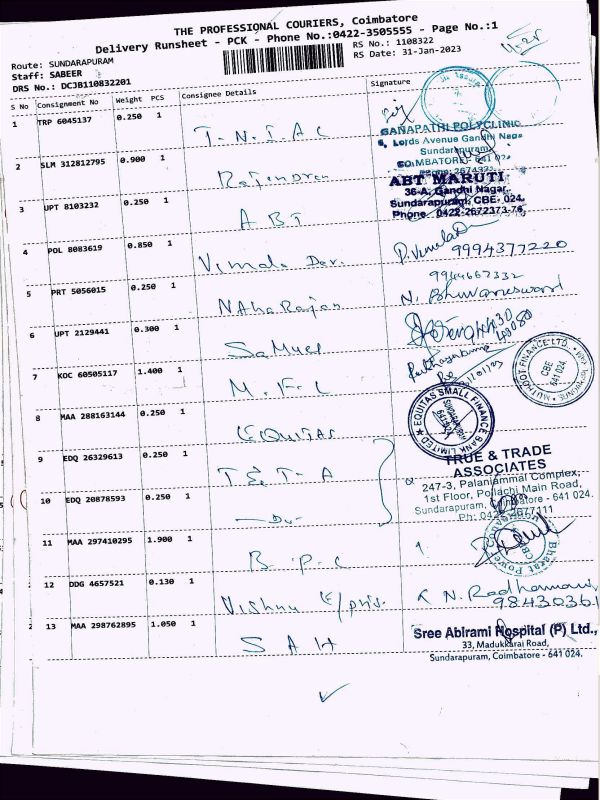 THE PROFESSIONAL COURIERS, Coimbatore
Delivery Runsheet - PCK - Phone No.:0422-3505555 - Page No.:1
Route: SUNDARAPURAM
RS No.: 1108322
Staff: SABEER
RS Date: 31-Jan-2023
DRS No.: DCJB110832201
S No Consignment No Weight PCS Consignee Details Signature
1 TRP 6045137 0.250 1 T.N.I.A.C
GANAPATHI POLYCLINIC
5, Lords Avenue Gandhi Nagar
Sundarapuram
COIMBATORE- 641 024
2 SLM 312812795 0.900 1 Rajendran
ABT MARUTI
36-A, Gandhi Nagar,
Sundarapuram, CBE- 024.
Phone. 0422-2672373-74,
3 UPT 8103232 0.250 1 A B T
4 POL 8083619 0.850 1 Vimala Devi P. Vimala
9994377220
5 PRT 5056015 0.250 1 NAhaRajan
9944667332
N. Bhuvaneswari
6 UPT 2129441 0.300 1 SaMuel
7 KOC 60505117 1.400 1 M.F.L
MUTHOOT FINANCE LTD.
CBE
641 024
8 MAA 288163144 0.250 1 EQUITAS
EQUITAS SMALL FINANCE BANK LIMITED
9 EDQ 26329613 0.250 1 T & T A
TRUE & TRADE
ASSOCIATES
247-3, Palaniammal Complex,
1st Floor, Pollachi Main Road,
Sundarapuram, Coimbatore - 641 024.
Ph: 0422-2677111
10 EDQ 20878593 0.250 1 -Do-
11 MAA 297410295 1.900 1 B.P.C
Bharat Power
CBE
12 DDG 4657521 0.130 1 Vishnu E/pris. N. Radhamani
98430361
13 MAA 298762895 1.050 1 S A H
Sree Abirami Hospital (P) Ltd.,
33, Madukkarai Road,
Sundarapuram, Coimbatore - 641 024.